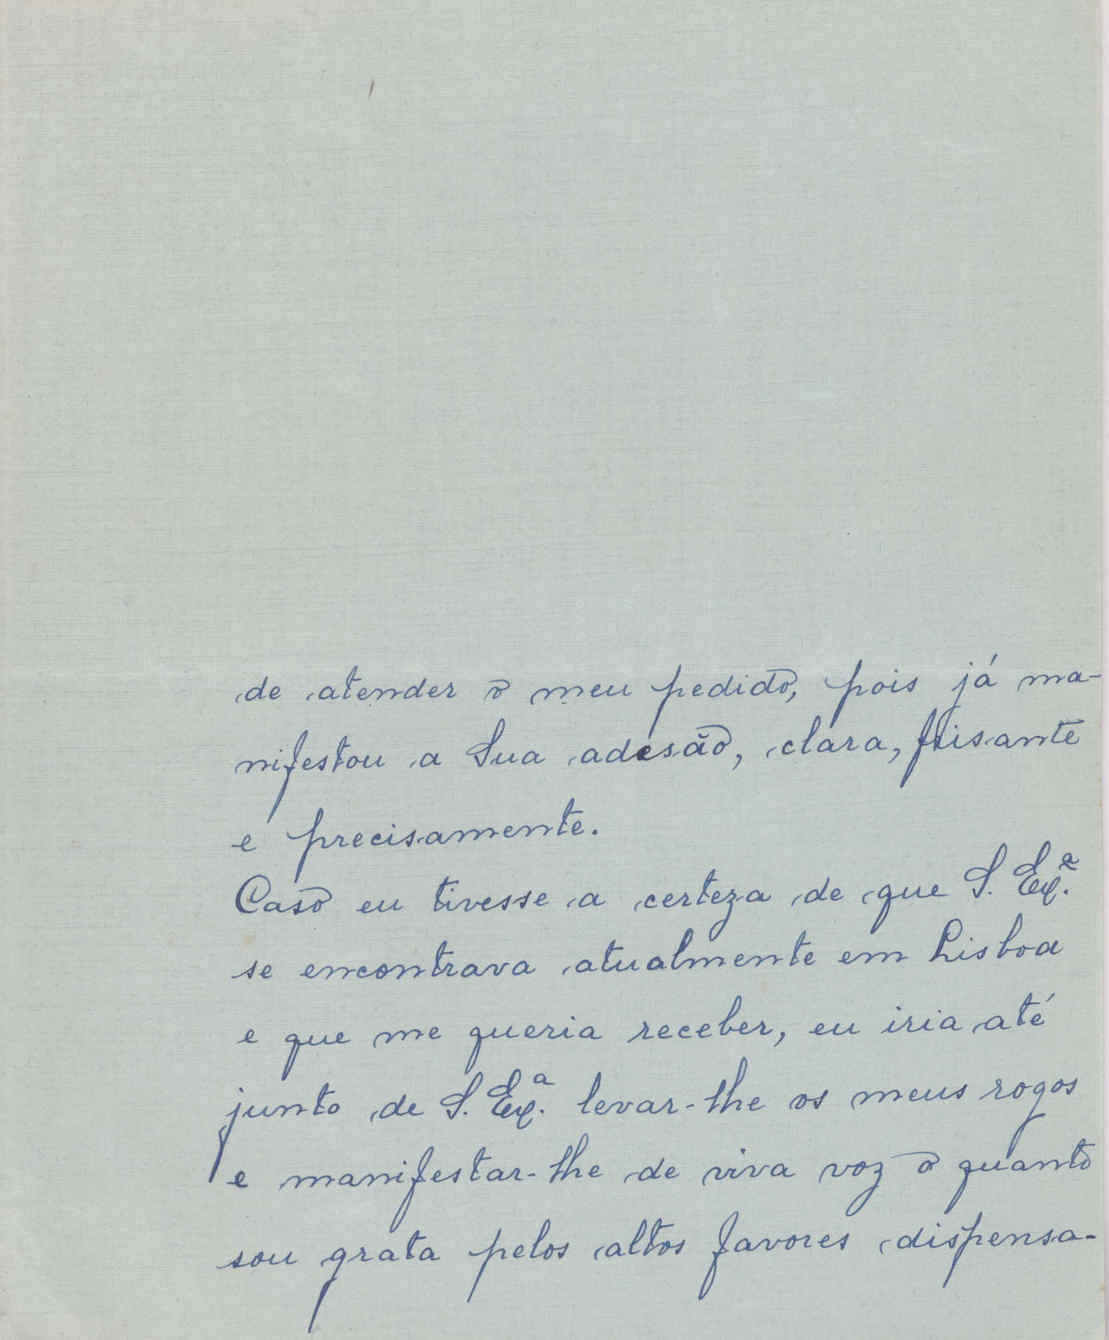 de atender o meu pedido, pois já ma-
nifestou a Sua adesão, clara, frisante
e precisamente.
Caso eu tivesse a certeza de que S. Exª.
se encontrava atualmente em Lisboa
e que me queria receber, eu iria até
junto de S. Exª. levar-lhe os meus rogos
e manifestar-lhe de viva voz o quanto
sou grata pelos altos favores dispensa-